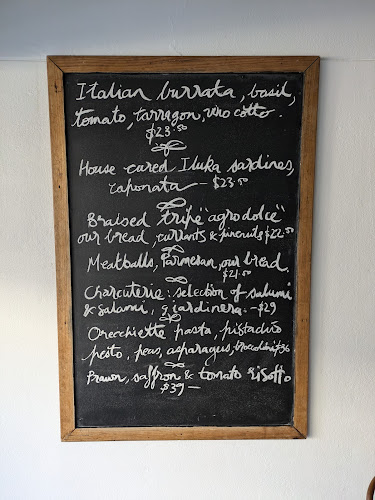 Italian burrata, basil,
tomato, tarragon, vino cotto.
$23.50
House cured Iluka sardines,
caponata — $23.50
Braised tripe "agrodolce"
our bread, currants & pinenuts $22.50
Meatballs, Parmesan, our bread.
$21.50
Charcuterie: selection of salumi
& salami, giardinera. — $29
Orecchiette pasta, pistachio
pesto, peas, asparagus, broadbini $36
Prawn, saffron & tomato risotto
$39 —